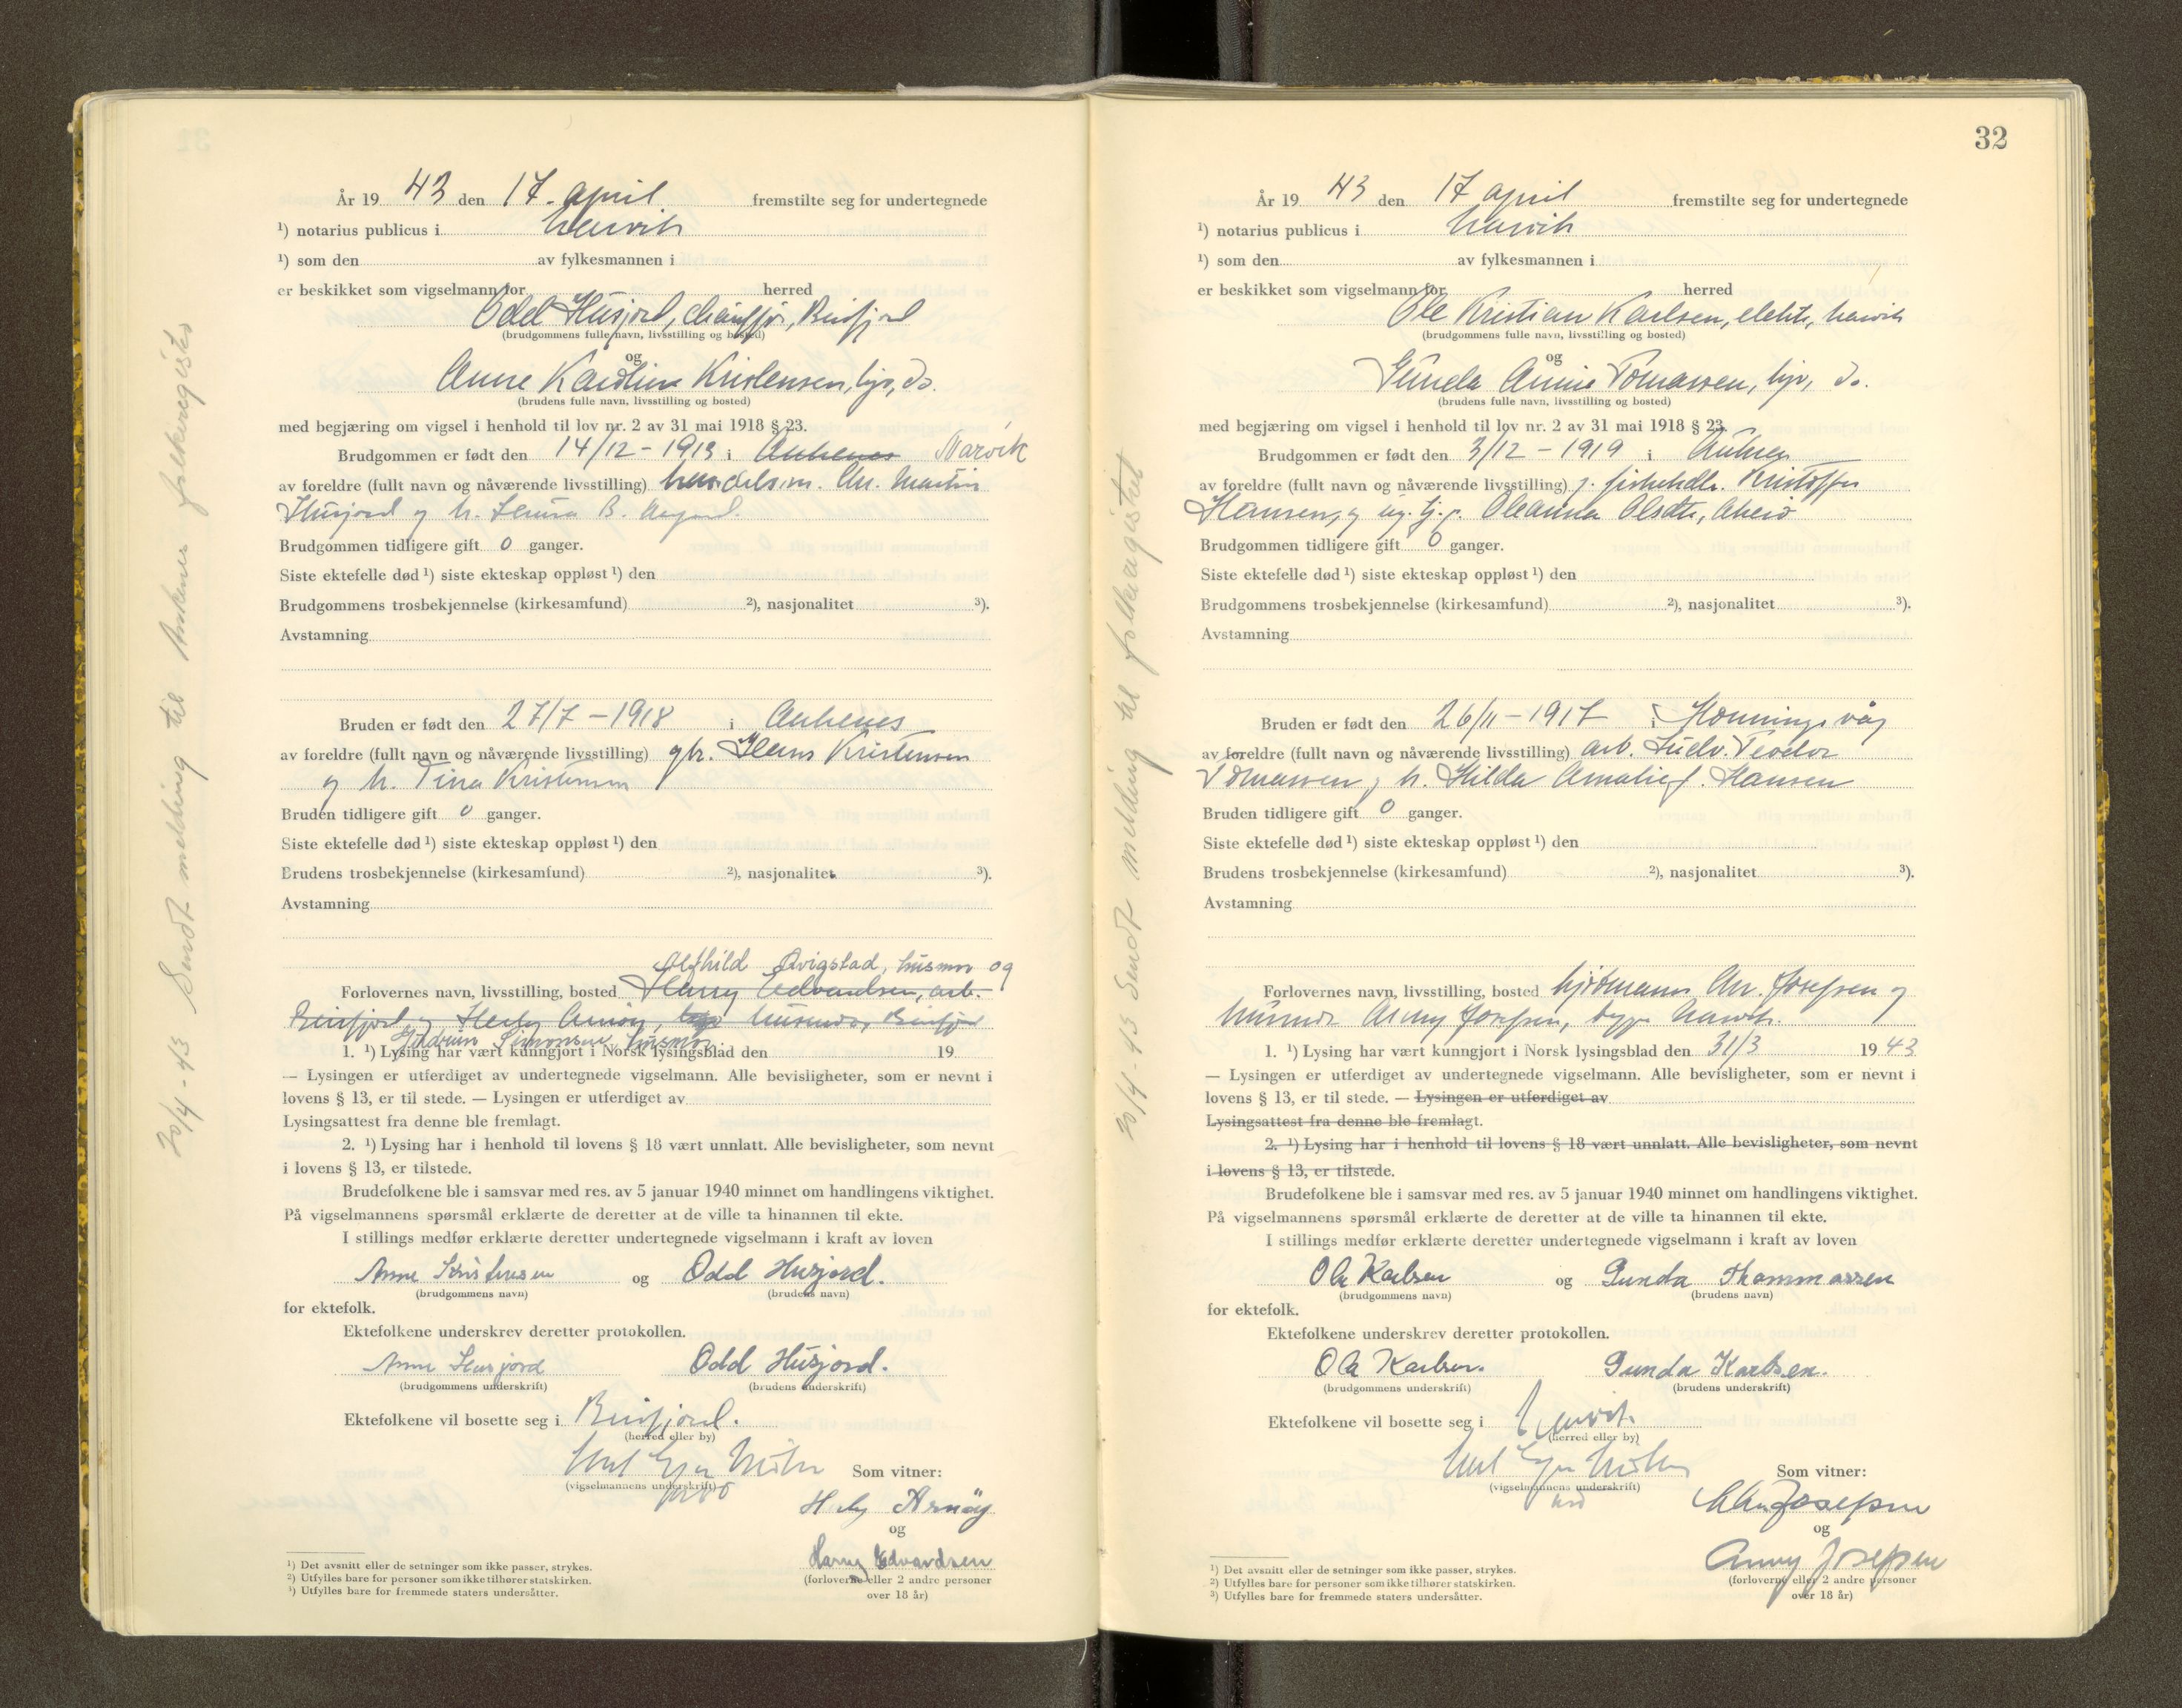 År 19 43 den 17. april fremstilte seg for undertegnede
¹) notarius publicus i Narvik
¹) som den av fylkesmannen i
er beskikket som vigselmann for herred
Odd Husjord, chauffør, Beisfjord
(brudgommens fulle navn, livsstilling og bosted)
og
Anne Karoline Kristensen, hjv, do.
(brudens fulle navn, livsstilling og bosted)
med begjæring om vigsel i henhold til lov nr. 2 av 31 mai 1918 § 23.
Brudgommen er født den 14/12 - 1913 i Ankenes Narvik
av foreldre (fullt navn og nåværende livsstilling) handelsm. Chr. Martin
Husjord og h. B.
Brudgommen tidligere gift 0 ganger.
Siste ektefelle død ¹) siste ekteskap oppløst ¹) den
Brudgommens trosbekjennelse (kirkesamfund) ²), nasjonalitet ³).
Avstamning
Bruden er født den 27/7 - 1918 i Ankenes
av foreldre (fullt navn og nåværende livsstilling) gbr. Hans Kristensen
og h. Tina Kristensen
Bruden tidligere gift 0 ganger.
Siste ektefelle død ¹) siste ekteskap oppløst ¹) den
Brudens trosbekjennelse (kirkesamfund) ²), nasjonalitet ³).
Avstamning
Alfhild Qvigstad, husmor og
Forlovernes navn, livsstilling, bosted Harry Edvardsen, arb.
Beisfjord og Herly Arnøy, husmor, Beisfjord
Gudrun Simonsen, husmor
1. ¹) Lysing har vært kunngjort i Norsk lysingsblad den 19
— Lysingen er utferdiget av undertegnede vigselmann. Alle bevisligheter, som er nevnt i
lovens § 13, er til stede. — Lysingen er utferdiget av
Lysingsattest fra denne ble fremlagt.
2. ¹) Lysing har i henhold til lovens § 18 vært unnlatt. Alle bevisligheter, som nevnt
i lovens § 13, er tilstede.
Brudefolkene ble i samsvar med res. av 5 januar 1940 minnet om handlingens viktighet.
På vigselmannens spørsmål erklærte de deretter at de ville ta hinannen til ekte.
I stillings medfør erklærte deretter undertegnede vigselmann i kraft av loven
Anne Kristensen og Odd Husjord.
(brudgommens navn) (brudens navn)
for ektefolk.
Ektefolkene underskrev deretter protokollen.
Anne Husjord Odd Husjord.
(brudgommens underskrift) (brudens underskrift)
Ektefolkene vil bosette seg i Beisfjord.
(herred eller by)
Som vitner:
(vigselmannens underskrift)
Herly Arnøy
og
Harry Edvardsen
(forloverne eller 2 andre personer
over 18 år)
¹) Det avsnitt eller de setninger som ikke passer, strykes.
²) Utfylles bare for personer som ikke tilhører statskirken.
³) Utfylles bare for fremmede staters undersåtter.
20/4-43 Sendt melding til Ankenes folkeregister
32
År 19 43 den 17 april fremstilte seg for undertegnede
¹) notarius publicus i Narvik
¹) som den av fylkesmannen i
er beskikket som vigselmann for herred
Ole Kristian Karlsen, elektr., Narvik
(brudgommens fulle navn, livsstilling og bosted)
og
Gunda Annie Tomassen, hjv, do.
(brudens fulle navn, livsstilling og bosted)
med begjæring om vigsel i henhold til lov nr. 2 av 31 mai 1918 § 23.
Brudgommen er født den 3/12 - 1919 i
av foreldre (fullt navn og nåværende livsstilling) f. fiskehdlr. Kristoffer
Hansen, og Oleanna Olsdtr,
Brudgommen tidligere gift 0 ganger.
Siste ektefelle død ¹) siste ekteskap oppløst ¹) den
Brudgommens trosbekjennelse (kirkesamfund) ²), nasjonalitet ³).
Avstamning
Bruden er født den 26/11 - 1917 i Honningsvåg
av foreldre (fullt navn og nåværende livsstilling) arb. Ludv. Teodor
Tomassen og h. Hilda Amalie f. Hansen
Bruden tidligere gift 0 ganger.
Siste ektefelle død ¹) siste ekteskap oppløst ¹) den
Brudens trosbekjennelse (kirkesamfund) ²), nasjonalitet ³).
Avstamning
Forlovernes navn, livsstilling, bosted kjøbmann Chr. Josefsen og
husmor Anny Josefsen, begge Narvik.
1. ¹) Lysing har vært kunngjort i Norsk lysingsblad den 31/3 19 43
— Lysingen er utferdiget av undertegnede vigselmann. Alle bevisligheter, som er nevnt i
lovens § 13, er til stede. — Lysingen er utferdiget av
Lysingsattest fra denne ble fremlagt.
2. ¹) Lysing har i henhold til lovens § 18 vært unnlatt. Alle bevisligheter, som nevnt
i lovens § 13, er tilstede.
Brudefolkene ble i samsvar med res. av 5 januar 1940 minnet om handlingens viktighet.
På vigselmannens spørsmål erklærte de deretter at de ville ta hinannen til ekte.
I stillings medfør erklærte deretter undertegnede vigselmann i kraft av loven
Ole Karlsen og Gunda Thommassen
(brudgommens navn) (brudens navn)
for ektefolk.
Ektefolkene underskrev deretter protokollen.
Ole Karlsen. Gunda Karlsen.
(brudgommens underskrift) (brudens underskrift)
Ektefolkene vil bosette seg i Narvik
(herred eller by)
Som vitner:
(vigselmannens underskrift)
Chr Josefsen
og
Anny Josefsen
(forloverne eller 2 andre personer
over 18 år)
¹) Det avsnitt eller de setninger som ikke passer, strykes.
²) Utfylles bare for personer som ikke tilhører statskirken.
³) Utfylles bare for fremmede staters undersåtter.
20/4-43 Sendt melding til folkeregistret